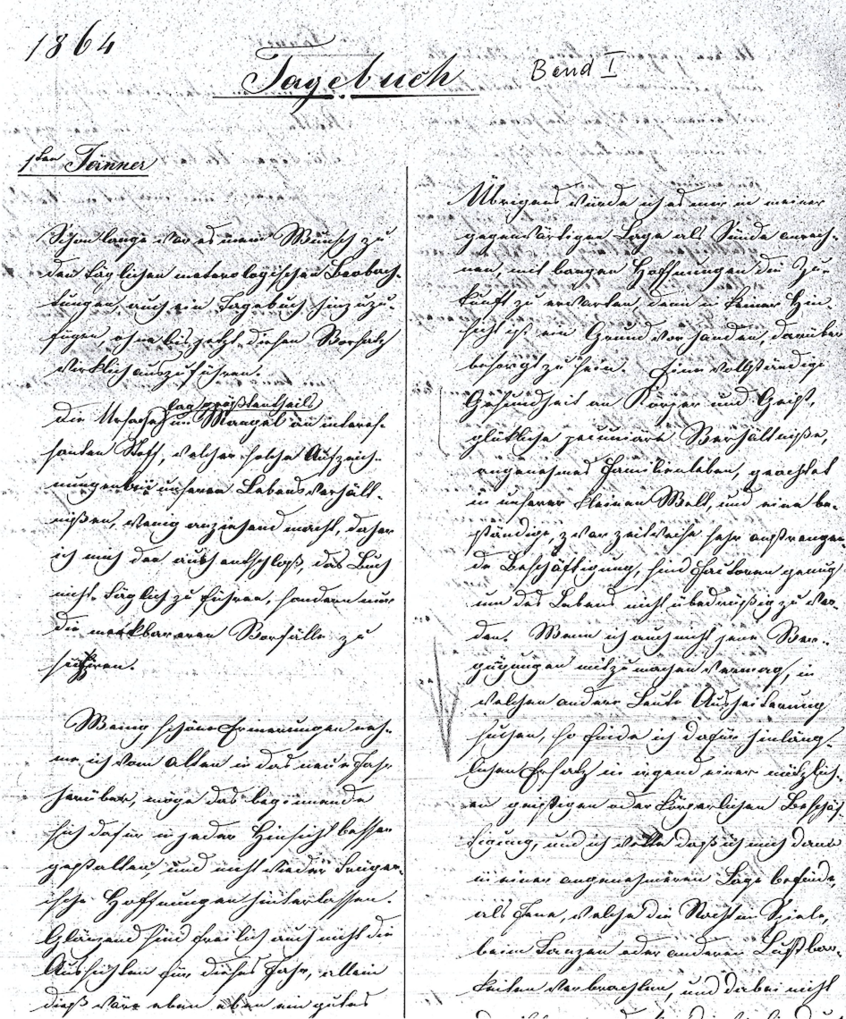 1864
Tagebuch
Band I
1ten Jänner
Schon lange war es mein Wunsch zu
den täglichen meterologischen Beobach-
tungen, auch ein Tagebuch hinzuzu-
fügen, ohne bis jetzt diesen Vorsatz
wirklich auszuführen.
lag größtentheils
Die Ursache im Mangel an interes-
santen Stoff, welcher solche Aufzeich-
nungen bei unseren Lebensverhält-
nißen, wenig anziehend macht, daher
ich mich den auch entschloß, das Buch
nicht täglich zu führen, sondern nur
die merkbareren Vorfälle zu
Wenig schöne Erinerungen neh-
me ich vom alten in das neue Jahr
herüber, möge das beginnende
sich dafür in jeder Hinsicht besser
gestalten, und nicht wieder trüger-
ische Hoffnungen hinterlassen.
Glänzend sind freilich auch nicht die
Aussichten für dieses Jahr, allein
dieß wäre eben eben ein gutes
Übrigens würde ich es nur in meiner
gegenwärtigen Lage als Sünde anrech-
nen, mit bangen Hoffnungen die Zu-
kunft zu erwarten denn in keiner Hin
sicht ist ein Grund vorhanden, darüber
besorgt zu sein. Eine vollständige
Gesundheit an Körper und Geist,
glückliche pecuniäre Verhältniße,
angenehmes Familienleben, geachtet
in unserer kleinen Welt, und eine be-
ständige, zwar zeitweise sehr anstrengen-
de Beschäftigung, sind Factoren genug
um des Lebens nicht überdrüßig zu wer-
den. Wenn ich auch nicht jene Ver-
gnügungen mitzumachen vermag, in
welchen andere Leute Aufheiterung
suchen, so finde ich dafür hinläng-
lichen Ersatz in irgend einer nützlich-
en geistigen oder körperlichen Beschäf-
tigung, und ich wette daß ich mich dann
in einer angenehmeren Lage befinde,
als Jene, welche die Nacht im Spiele,
beim Tanzen oder anderen Lustbar-
keiten verbrachten, und dabei nicht